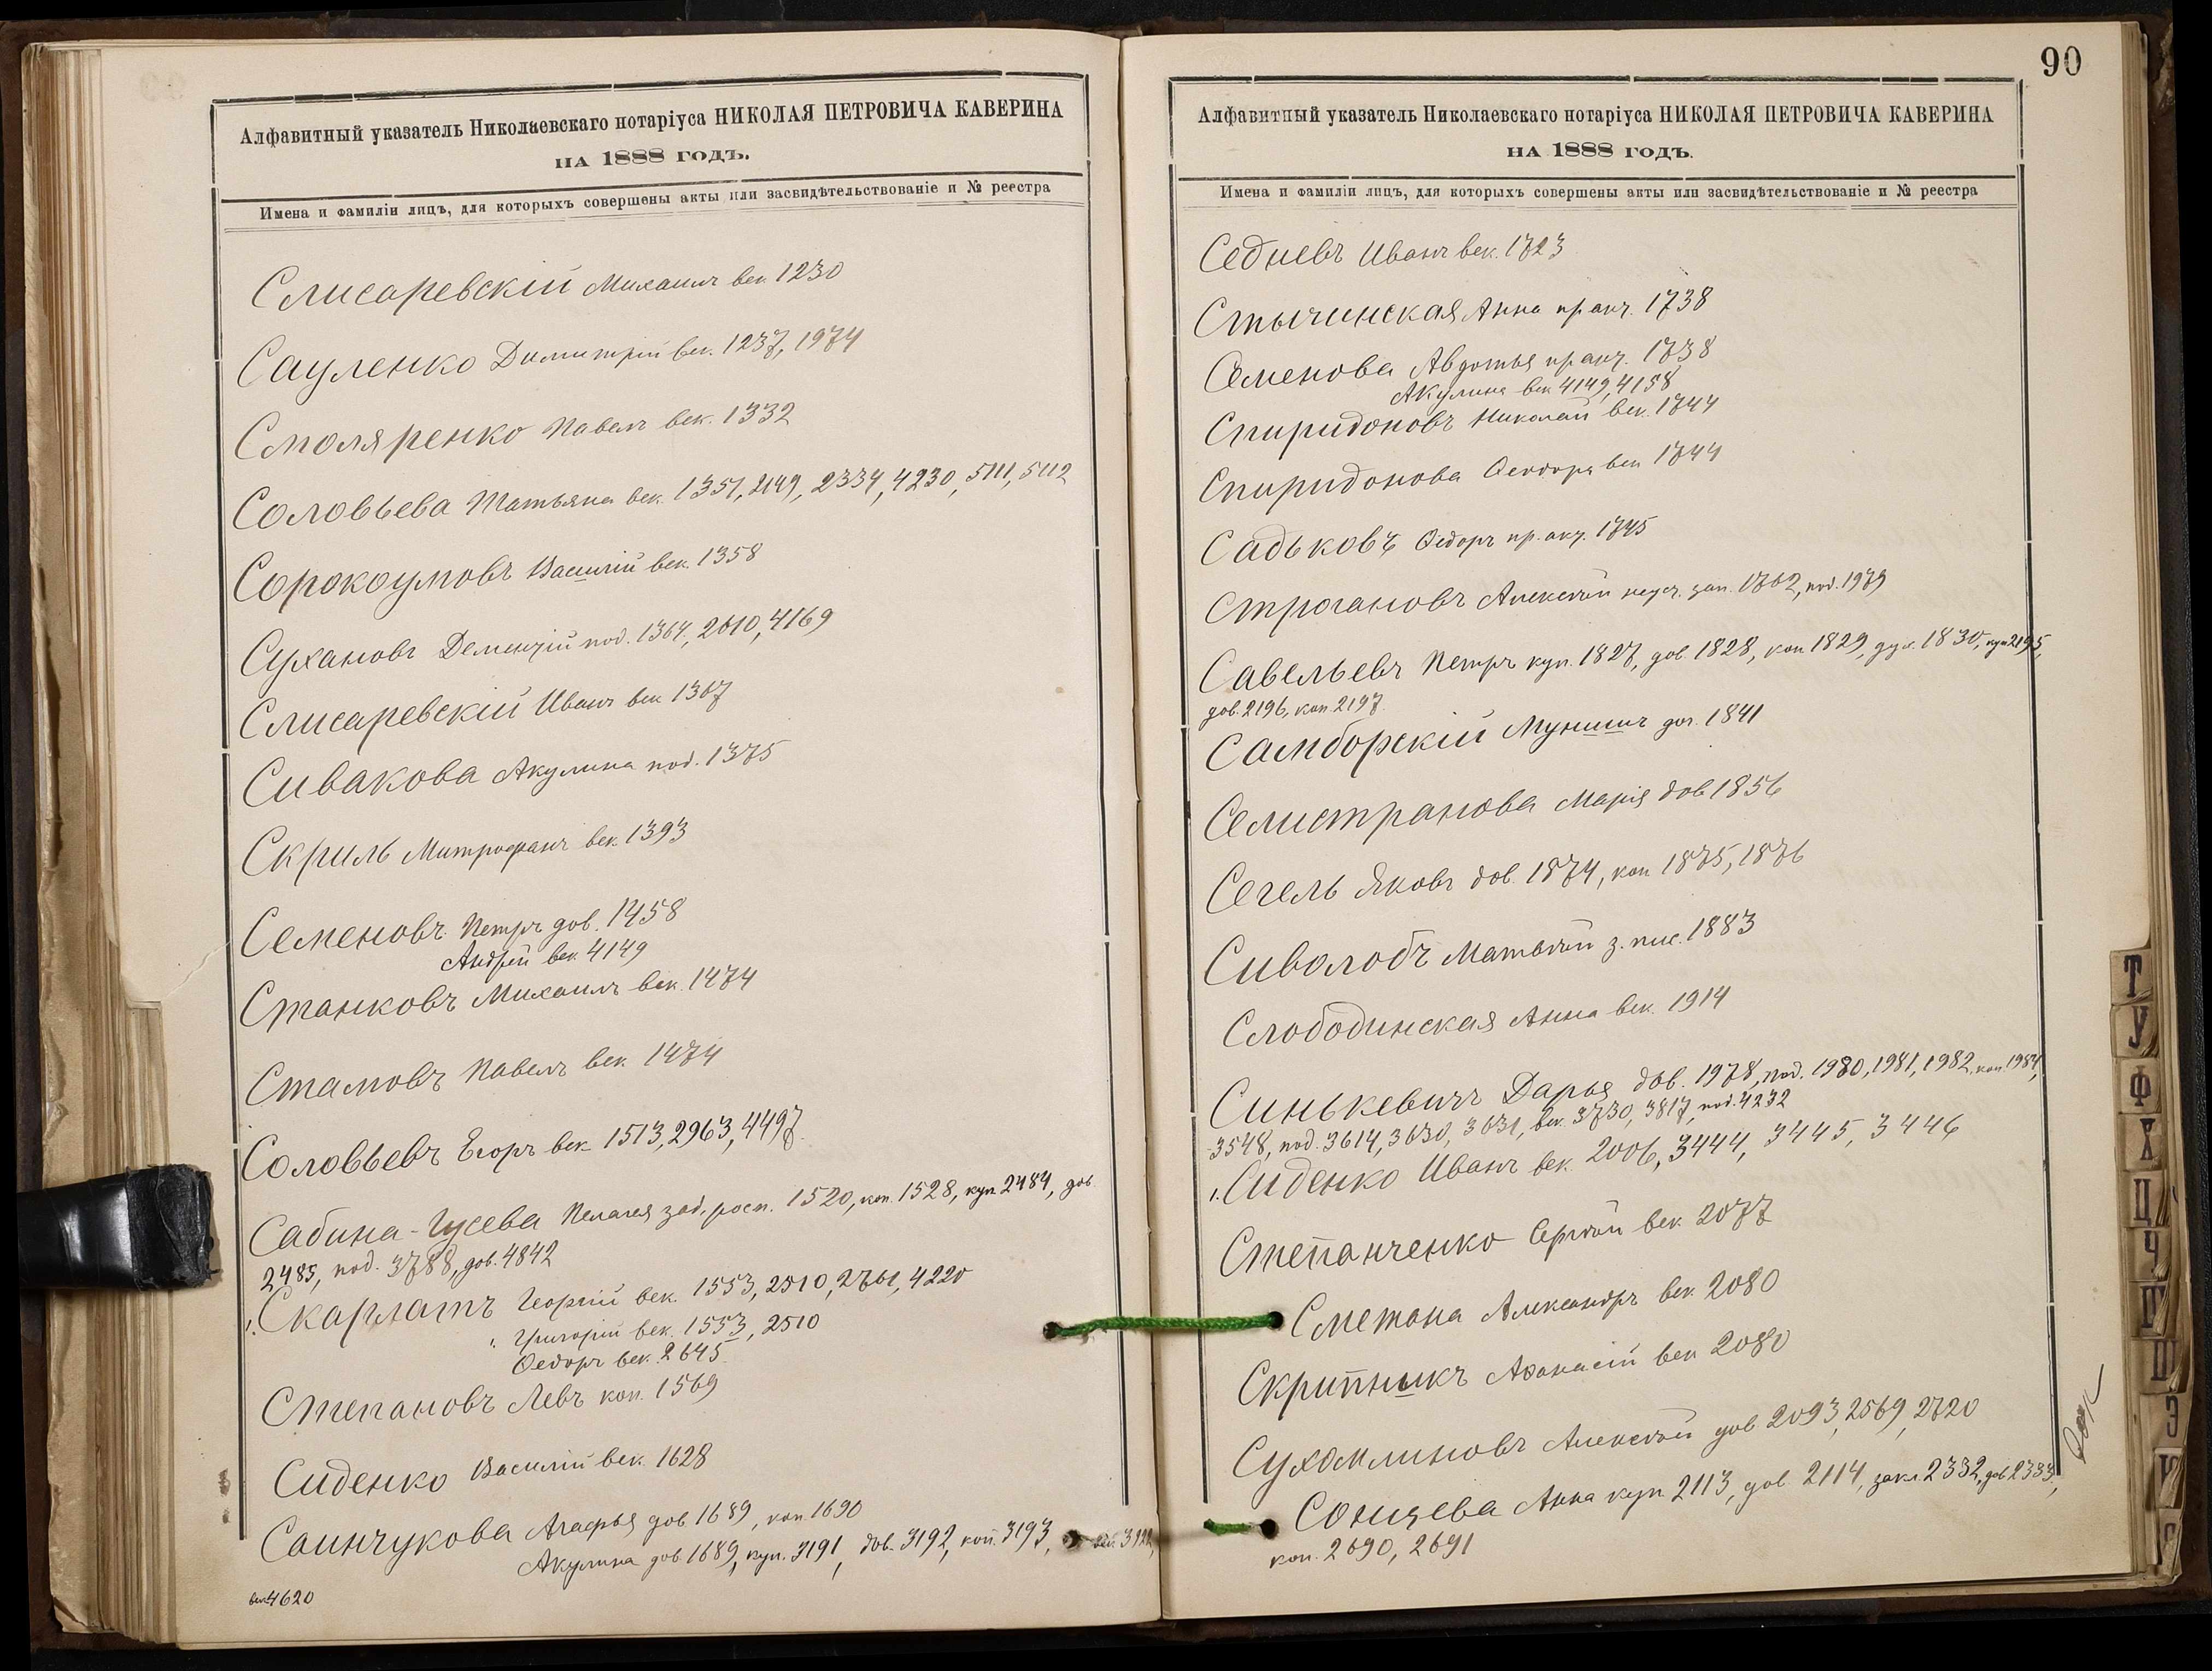 Алфавитный указатель Николаевскаго нотаріуса НИКОЛАЯ ПЕТРОВИЧА КАВЕРИНА
НА 1888 ГОДЪ.
Имена и фамиліи лицъ, для которыхъ совершены акты или засвидѣтельствованіе и № реестра
Слисаревскій Михаилъ век. 1230
Сауленко Димитрій век. 1237, 1974
Смоляренко Павелъ век. 1332
Соловьева Татьяна век. 1351, 2149, 2334, 4230, 5111, 5112
Сорокоумовъ Василій век. 1358
Сухановъ Дементій под. 1364, 2010, 4169
Слисаревскій Иванъ век 1367
Сивакова Акулина под. 1375
Скриль Митрофанъ век. 1393
Семеновъ Петръ дов. 1458
Андрей век. 4149
Станковъ Михаилъ век. 1474
Стамовъ Павелъ век. 1474
Соловьевъ Егоръ век. 1513, 2963, 4497
Сабина-Гусева Пелагея зад. росп. 1520, коп. 1528, куп 2484, дов.
2485, под. 3788, дов. 4842
Скарлатъ Георгій век. 1553, 2510, 2761, 4220
Григорій век. 1553, 2510
Ѳедоръ век. 2645
Степановъ Левъ коп. 1569
Сиденко Василій век. 1628
Саинчукова Агафья дов 1689, коп 1690
Акулина дов. 1689, куп. 3191, дов. 3192, коп. 3193,
век 4620
90
Алфавитный указатель Николаевскаго нотаріуса НИКОЛАЯ ПЕТРОВИЧА КАВЕРИНА
НА 1888 ГОДЪ.
Имена и фамиліи лицъ, для которыхъ совершены акты или засвидѣтельствованіе и № реестра
Седневъ Иванъ век. 1723
Стычинская Анна пр. акч. 1738
Семенова Авдотья пр. акч. 1738
Акулина век 4149, 4158
Спиридоновъ Николай век. 1744
Спиридонова Ѳеодора век 1744
Садьковъ Ѳедоръ пр. акч. 1745
Строгановъ Алексѣй зап. 1762, под. 1979
Савельевъ Петръ куп. 1827, дов. 1828, коп 1829, дух. 1830, куп 2195,
дов. 2196, коп. 2197
Самборскій дог. 1841
Селистранова Марія дов 1856
Сегель Яковъ дов. 1874, коп 1875, 1876
Сиволобъ Матвѣй з. пис. 1883
Слободинская Анна век. 1914
Синькевичъ Дарья дов. 1978, под. 1980, 1981, 1982, коп. 1984,
3548, под. 3614, 3630, 3631, век. 3730, 3817, под. 4232
Сиденко Иванъ век. 2006, 3444, 3445, 3446
Степанченко Сергѣй век. 2077
Сметана Александръ век 2080
Скрипныкъ Аѳанасій век 2080
Сухомлиновъ Алексѣй дов 2093, 2569, 2720
Сонцева Анна куп 2113, дов. 2114, закл. 2332, дов 2333,
коп. 2690, 2691
Т
У
Ф
Х
Ц
Ч
Ш
Э